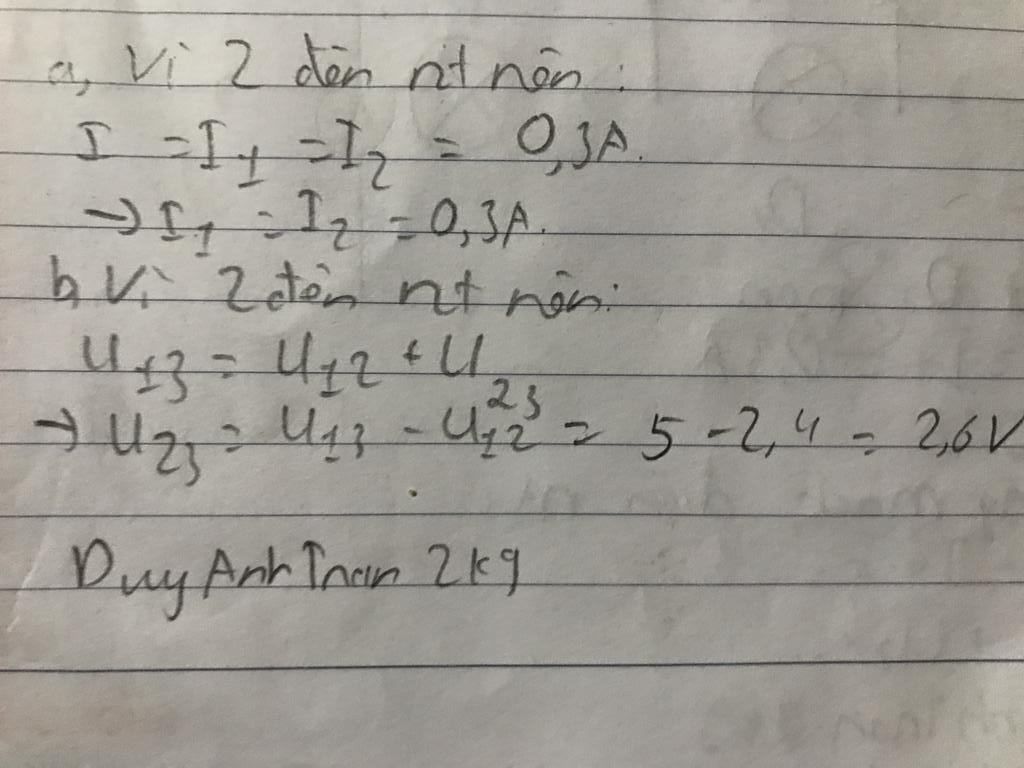 a, Vì 2 đèn nt nên:
I = I1 = I2 = 0,3A.
→ I1 = I2 = 0,3A.
b, Vì 2 đèn nt nên:
U13 = U12 + U23
→ U23 = U13 - U12 = 5 - 2,4 = 2,6V
DuyAnhTran 2k9